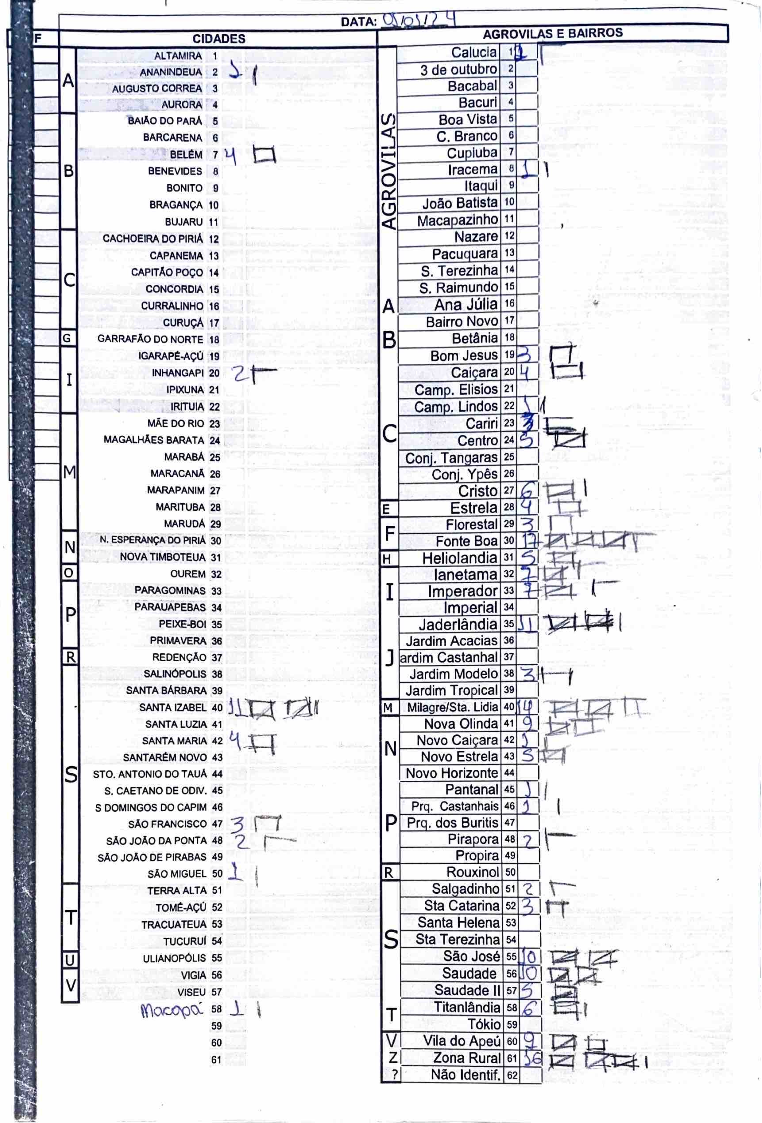 DATA: 01/01/24
F
CIDADES
AGROVILAS E BAIRROS
A
ALTAMIRA 1
ANANINDEUA 2 1
AUGUSTO CORREA 3
AURORA 4
B
BAIÃO DO PARÁ 5
BARCARENA 6
BELÉM 7 4
BENEVIDES 8
BONITO 9
BRAGANÇA 10
BUJARU 11
C
CACHOEIRA DO PIRIÁ 12
CAPANEMA 13
CAPITÃO POÇO 14
CONCORDIA 15
CURRALINHO 16
CURUÇÁ 17
G
GARRAFÃO DO NORTE 18
I
IGARAPÉ-AÇÚ 19
INHANGAPI 20 2
IPIXUNA 21
IRITUIA 22
M
MÃE DO RIO 23
MAGALHÃES BARATA 24
MARABÁ 25
MARACANÃ 26
MARAPANIM 27
MARITUBA 28
MARUDÁ 29
N
N. ESPERANÇA DO PIRIÁ 30
NOVA TIMBOTEUA 31
O
OUREM 32
P
PARAGOMINAS 33
PARAUAPEBAS 34
PEIXE-BOI 35
PRIMAVERA 36
R
REDENÇÃO 37
S
SALINÓPOLIS 38
SANTA BÁRBARA 39
SANTA IZABEL 40 11
SANTA LUZIA 41
SANTA MARIA 42 4
SANTARÉM NOVO 43
STO. ANTONIO DO TAUÁ 44
S. CAETANO DE ODIV. 45
S DOMINGOS DO CAPIM 46
SÃO FRANCISCO 47 3
SÃO JOÃO DA PONTA 48 2
SÃO JOÃO DE PIRABAS 49
SÃO MIGUEL 50 1
T
TERRA ALTA 51
TOMÉ-AÇÚ 52
TRACUATEUA 53
TUCURUÍ 54
U
ULIANÓPOLIS 55
V
VIGIA 56
VISEU 57
Macapá 58 1
59
60
61
AGROVILAS
Calucia 1 1
3 de outubro 2
Bacabal 3
Bacuri 4
Boa Vista 5
C. Branco 6
Cupiuba 7
Iracema 8 1
Itaqui 9
João Batista 10
Macapazinho 11
Nazare 12
Pacuquara 13
S. Terezinha 14
S. Raimundo 15
A
Ana Júlia 16
B
Bairro Novo 17
Betânia 18
Bom Jesus 19 3
C
Caiçara 20 4
Camp. Elisios 21
Camp. Lindos 22 1
Cariri 23 3
Centro 24 5
Conj. Tangaras 25
Conj. Ypês 26
Cristo 27 6
E
Estrela 28 4
F
Florestal 29 3
Fonte Boa 30 17
H
Heliolandia 31 5
I
Ianetama 32 7
Imperador 33 7
Imperial 34
J
Jaderlândia 35 11
Jardim Acacias 36
ardim Castanhal 37
Jardim Modelo 38 3
Jardim Tropical 39
M
Milagre/Sta. Lidia 40 14
N
Nova Olinda 41 9
Novo Caiçara 42 1
Novo Estrela 43 5
Novo Horizonte 44
P
Pantanal 45 1
Prq. Castanhais 46 1
Prq. dos Buritis 47
Pirapora 48 2
Propira 49
R
Rouxinol 50
S
Salgadinho 51 2
Sta Catarina 52 3
Santa Helena 53
Sta Terezinha 54
São José 55 10
Saudade 56 10
Saudade II 57 5
T
Titanlândia 58 6
Tókio 59
V
Vila do Apeú 60 9
Z
Zona Rural 61 16
?
Não Identif. 62